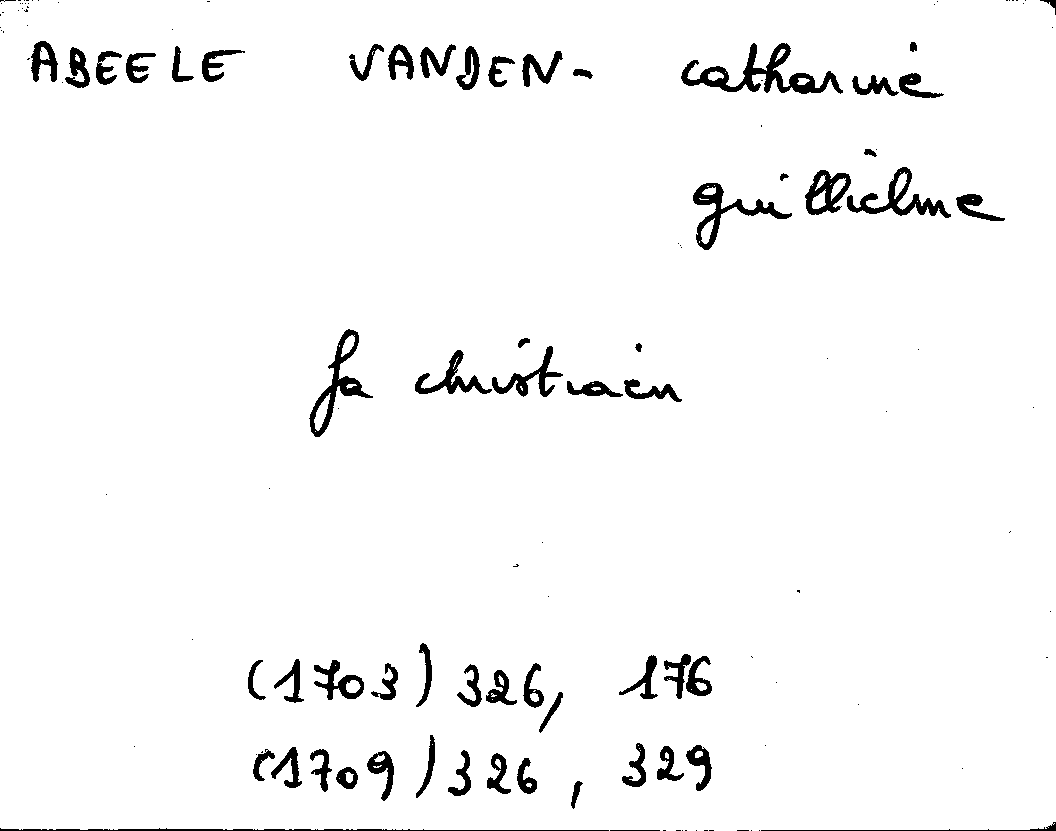 ABEELE VANDEN- catharine
guillielme
fa christiaen
(1703) 326, 176
(1709) 326, 329